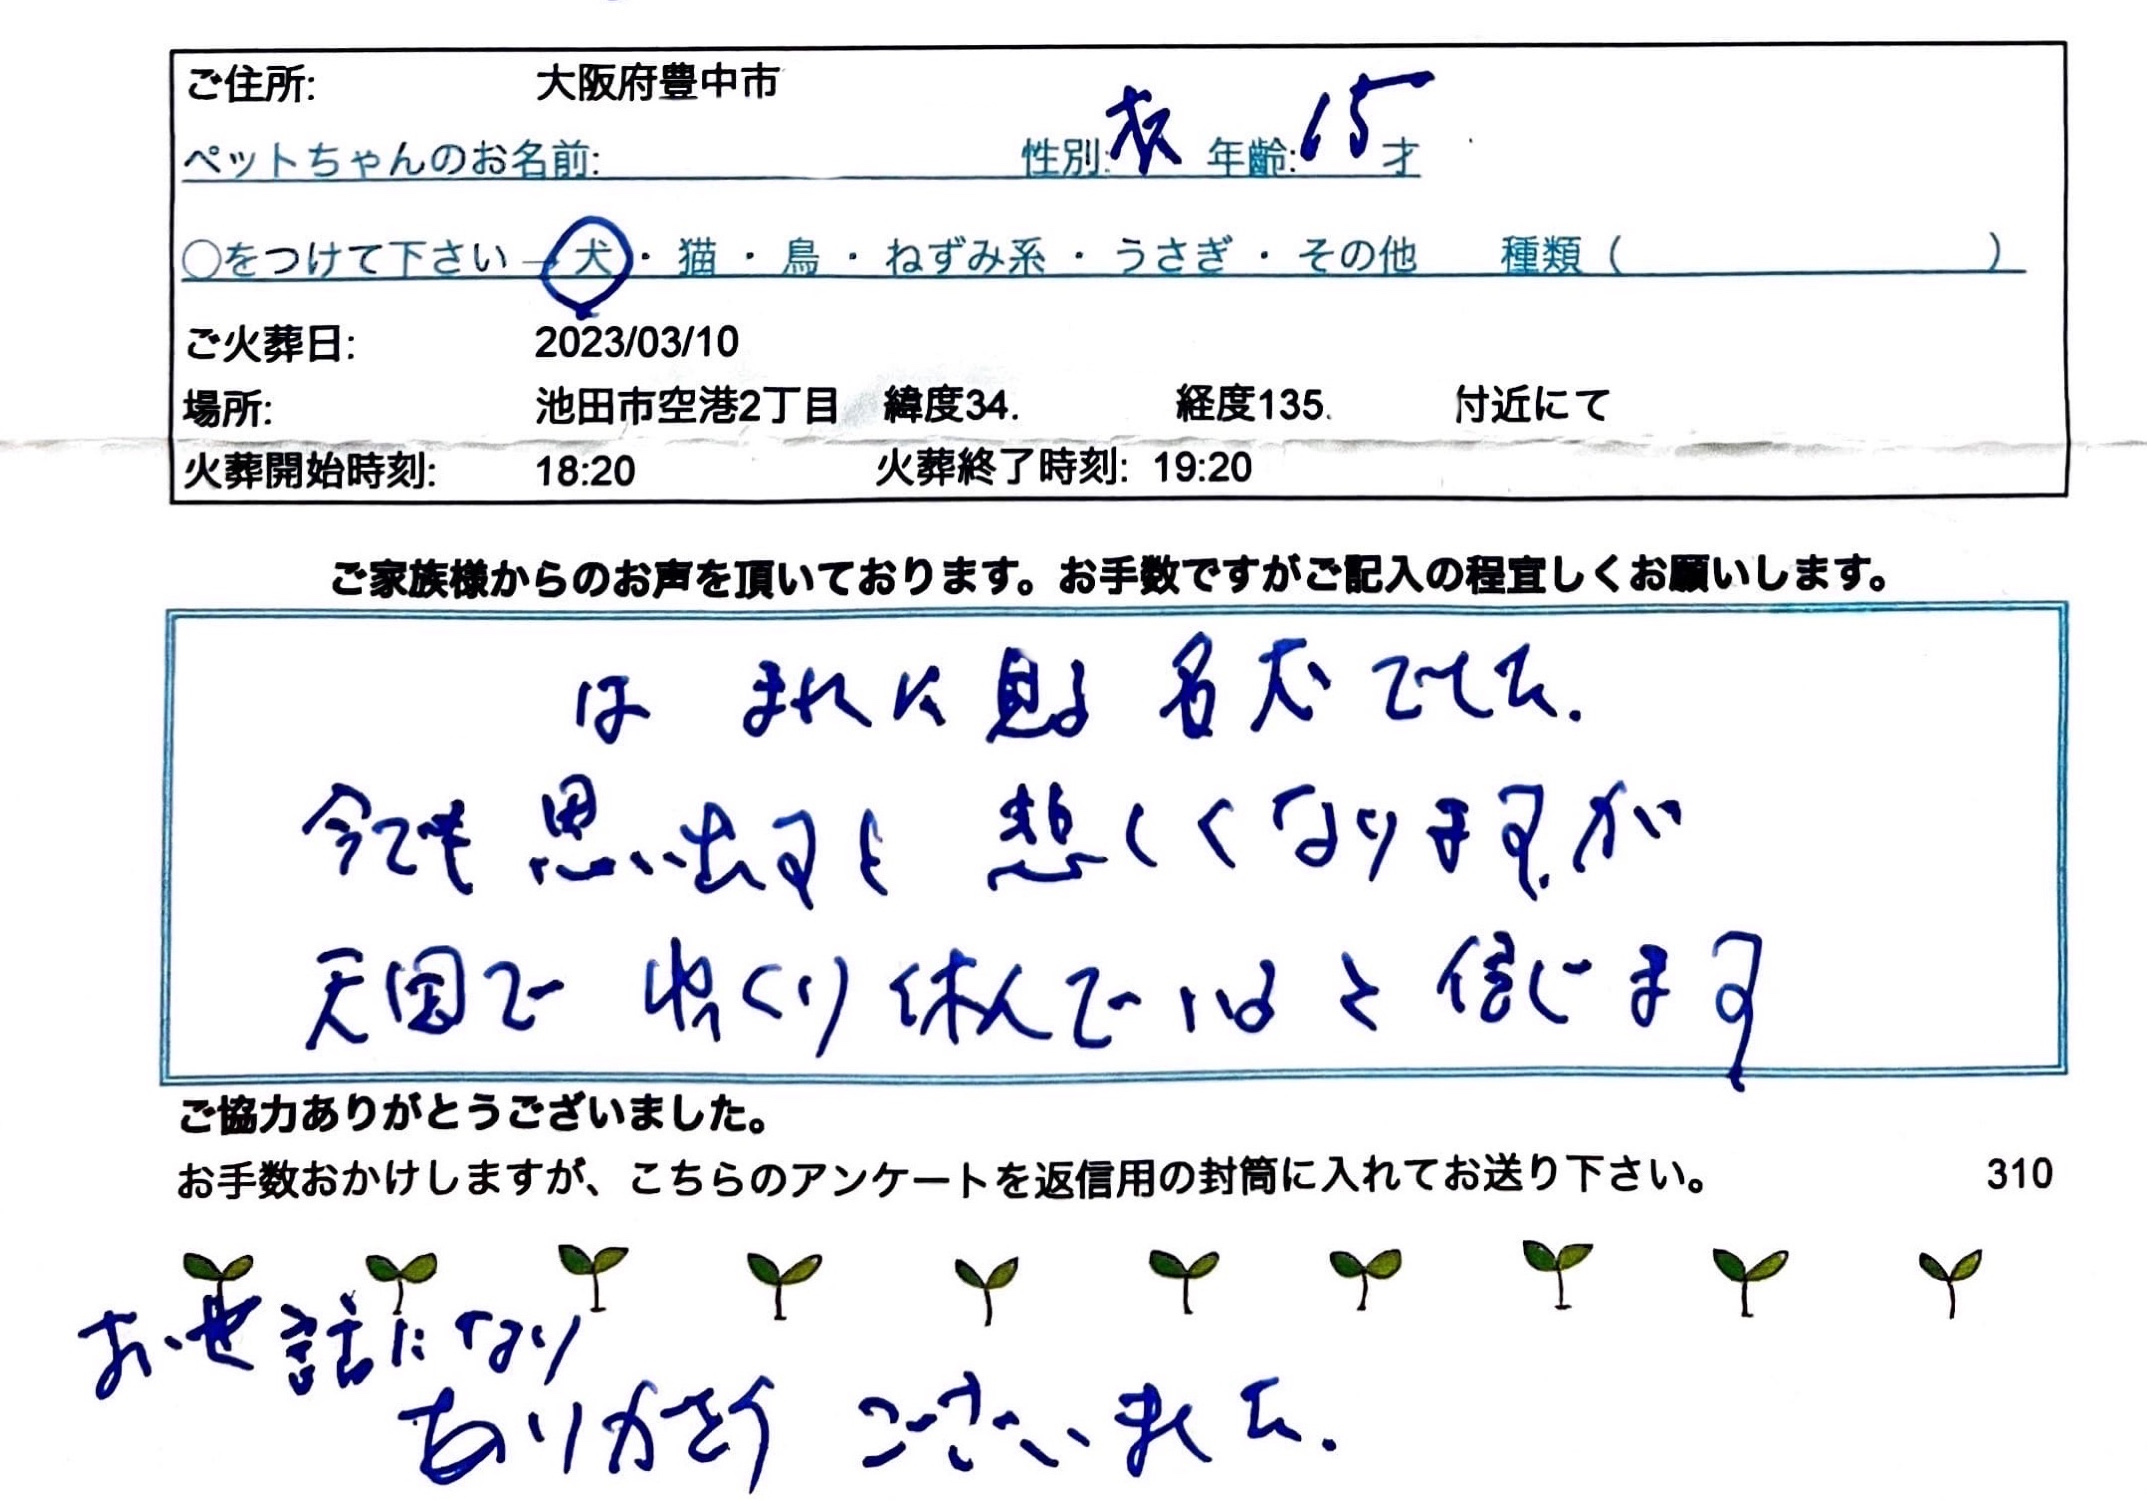 ご住所: 大阪府豊中市
ペットちゃんのお名前: 性別: 年齢: 15才
○をつけて下さい→犬・猫・鳥・ねずみ系・うさぎ・その他 種類( )
ご火葬日: 2023/03/10
場所: 池田市空港2丁目 緯度34. 経度135. 付近にて
火葬開始時刻: 18:20 火葬終了時刻: 19:20
ご家族様からのお声を頂いております。お手数ですがご記入の程宜しくお願いします。
は まれに見る 名犬でした.
今でも 思い出すと 悲しくなりますが
天国で ゆっくり休んでいると信じます
ご協力ありがとうございました。
お手数おかけしますが、こちらのアンケートを返信用の封筒に入れてお送り下さい。 310
お世話になり
ありがとうございました.